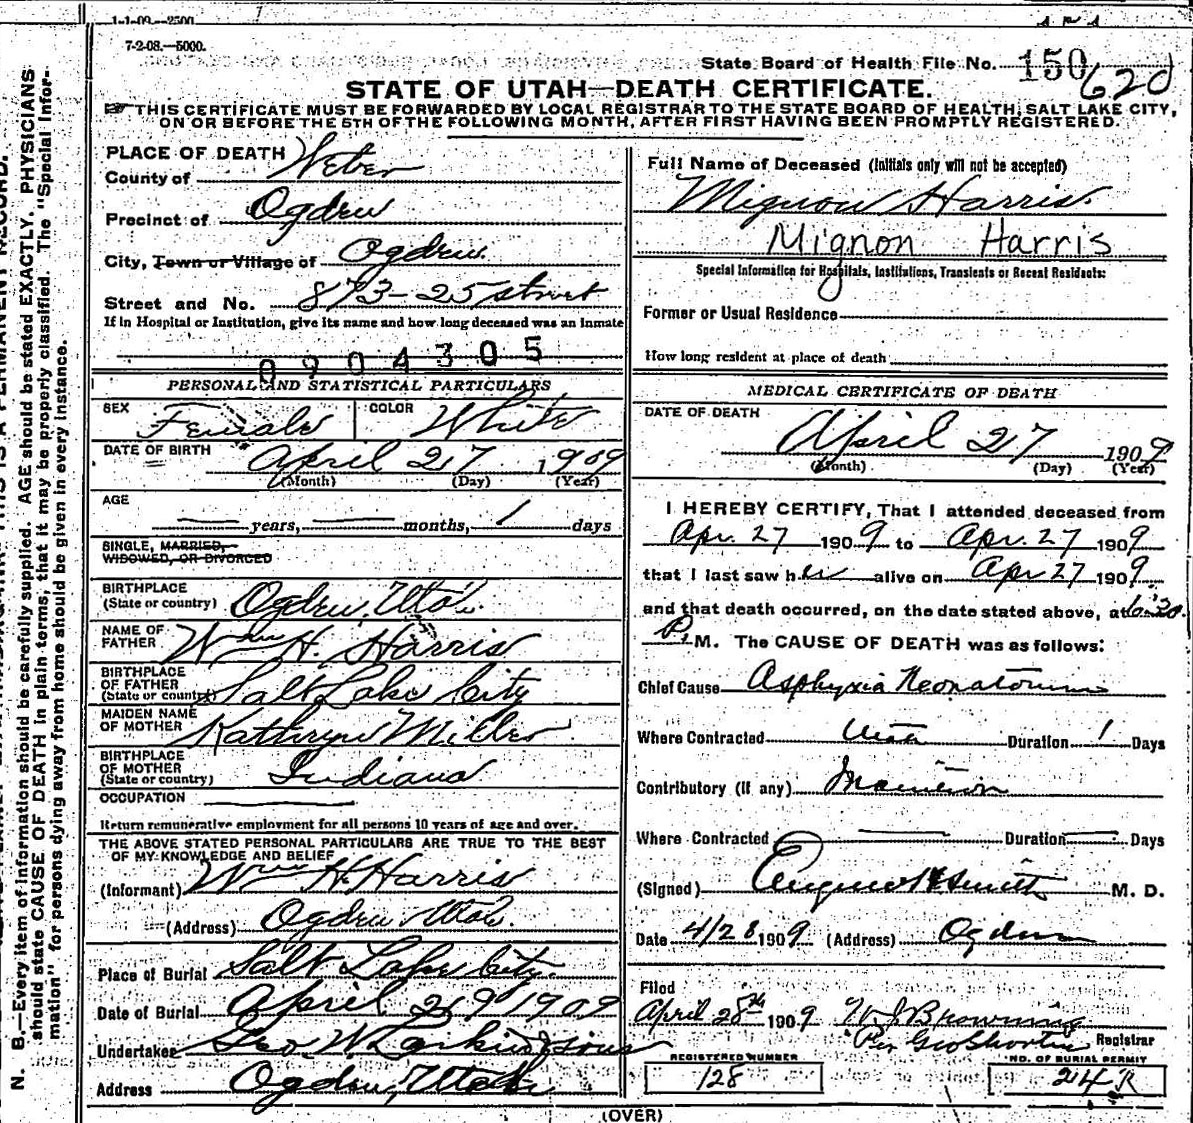 7-2-08.—5000.
State Board of Health File No. 150 620
STATE OF UTAH—DEATH CERTIFICATE.
THIS CERTIFICATE MUST BE FORWARDED BY LOCAL REGISTRAR TO THE STATE BOARD OF HEALTH, SALT LAKE CITY,
ON OR BEFORE THE 5TH OF THE FOLLOWING MONTH, AFTER FIRST HAVING BEEN PROMPTLY REGISTERED.
PLACE OF DEATH
County of Weber
Precinct of Ogden
City, Town or Village of Ogden
Street and No. 873-25 street
If in Hospital or Institution, give its name and how long deceased was an inmate
0904305
PERSONAL AND STATISTICAL PARTICULARS
SEX Female COLOR White
DATE OF BIRTH April 27 1909
(Month) (Day) (Year)
AGE
years, months, 1 days
SINGLE, MARRIED,
WIDOWED, OR DIVORCED
BIRTHPLACE
(State or country) Ogden, Utah.
NAME OF
FATHER Wm H. Harris
BIRTHPLACE
OF FATHER
(State or country) Salt Lake City
MAIDEN NAME
OF MOTHER Kathryn Miller
BIRTHPLACE
OF MOTHER
(State or country) Indiana
OCCUPATION
Return remunerative employment for all persons 10 years of age and over.
THE ABOVE STATED PERSONAL PARTICULARS ARE TRUE TO THE BEST
OF MY KNOWLEDGE AND BELIEF
(Informant) Wm H. Harris
(Address) Ogden Utah.
Place of Burial Salt Lake City.
Date of Burial April 29 1909
Undertaker Geo W. Larkin & sons
Address Ogden, Utah
Full Name of Deceased (Initials only will not be accepted)
Mignon Harris.
Mignon Harris
Special Information for Hospitals, Institutions, Transients or Recent Residents:
Former or Usual Residence
How long resident at place of death
MEDICAL CERTIFICATE OF DEATH
DATE OF DEATH
April 27 1909
(Month) (Day) (Year)
I HEREBY CERTIFY, That I attended deceased from
Apr. 27 1909 to Apr. 27 1909
that I last saw her alive on Apr 27 1909
and that death occurred, on the date stated above, at 6:30
P. M. The CAUSE OF DEATH was as follows:
Chief Cause Asphyxia Neonatorum
Where Contracted Duration 1 Days
Contributory (if any) Inanition
Where Contracted Duration Days
(Signed) Eugene H Smith M. D.
Date 4/28 1909 (Address) Ogden
Filed
April 28th 1909 Browning
Per Geo Shorten Registrar
REGISTERED NUMBER
128
NO. OF BURIAL PERMIT
24 R
(OVER)
N. B.—Every item of information should be carefully supplied. AGE should be stated EXACTLY. PHYSICIANS
should state CAUSE OF DEATH in plain terms, that it may be properly classified. The "Special Infor-
mation" for persons dying away from home should be given in every instance.